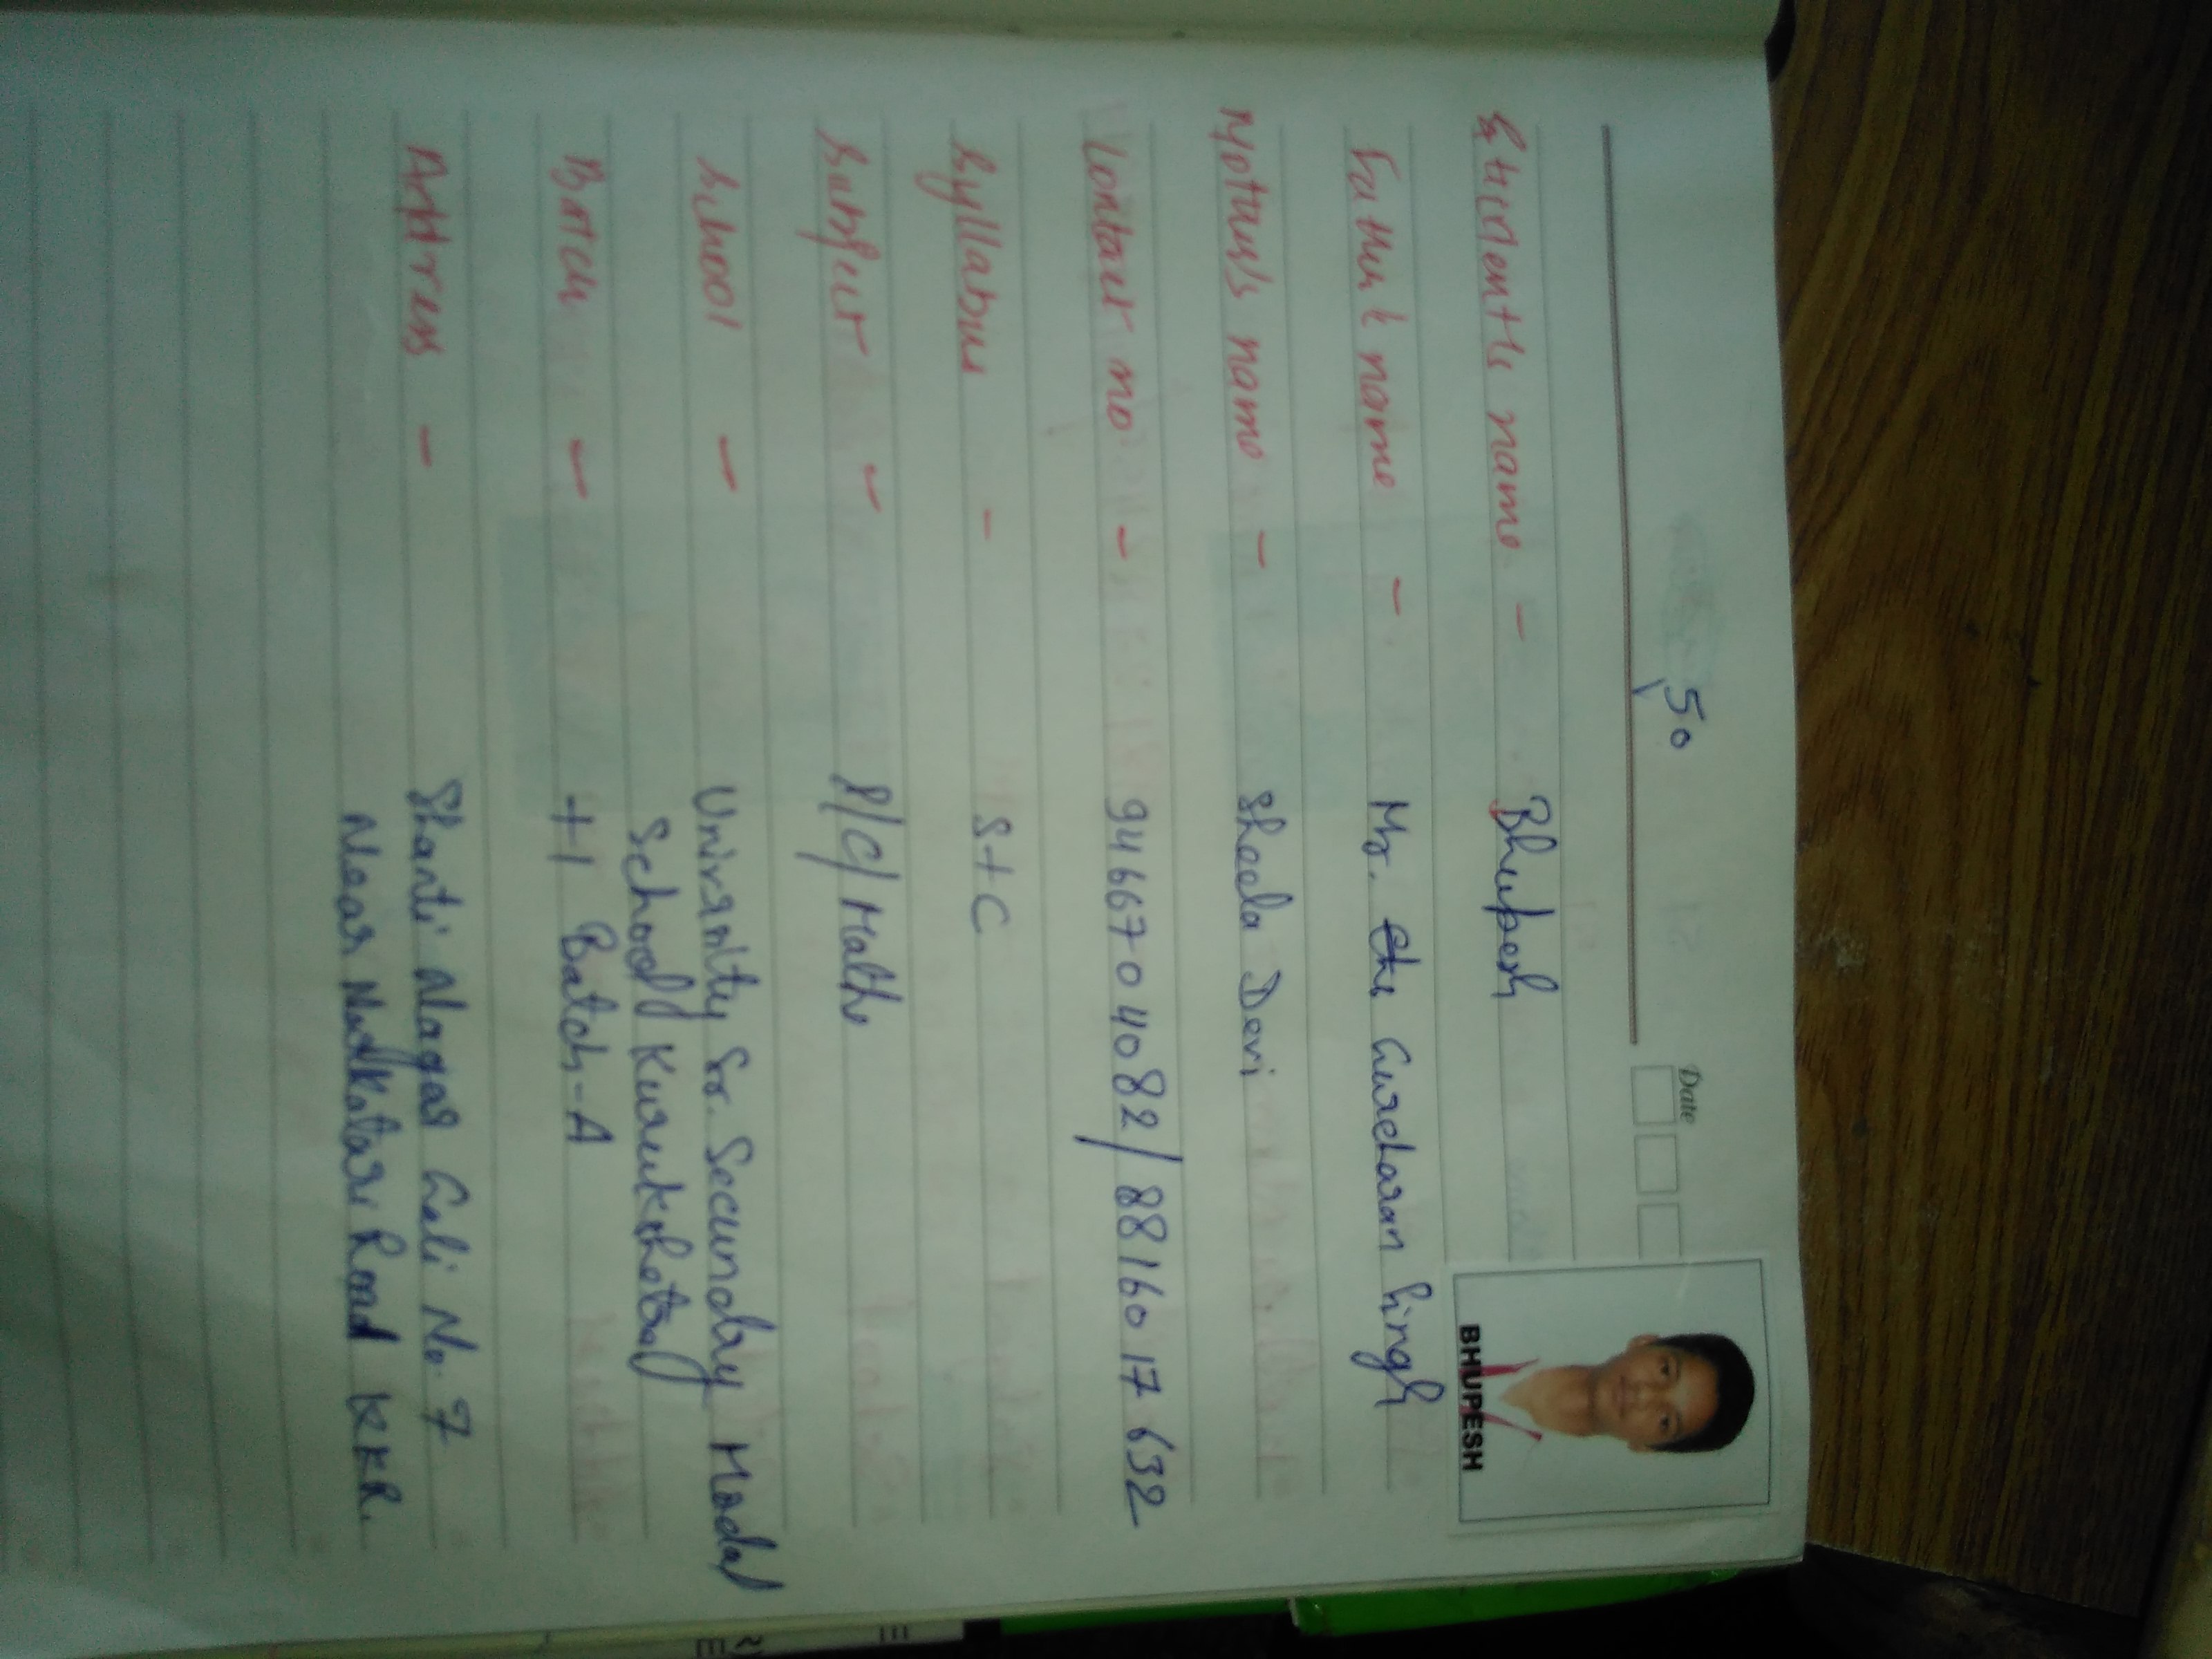 50
Date
BHUPESH
Student's name - Bhupesh
Father's name - Mr. Gurcharan Singh
Mother's name - Sheela Devi
Contact no. - 9466704082/8816017632
Syllabus - S+C
Subject - P/C/Maths
School - University Sr. Secundry Modal
School Kurukshetra
Batch - +1 Batch-A
Address - Shanti Nagar Gali No. 7
Near Road KKR.